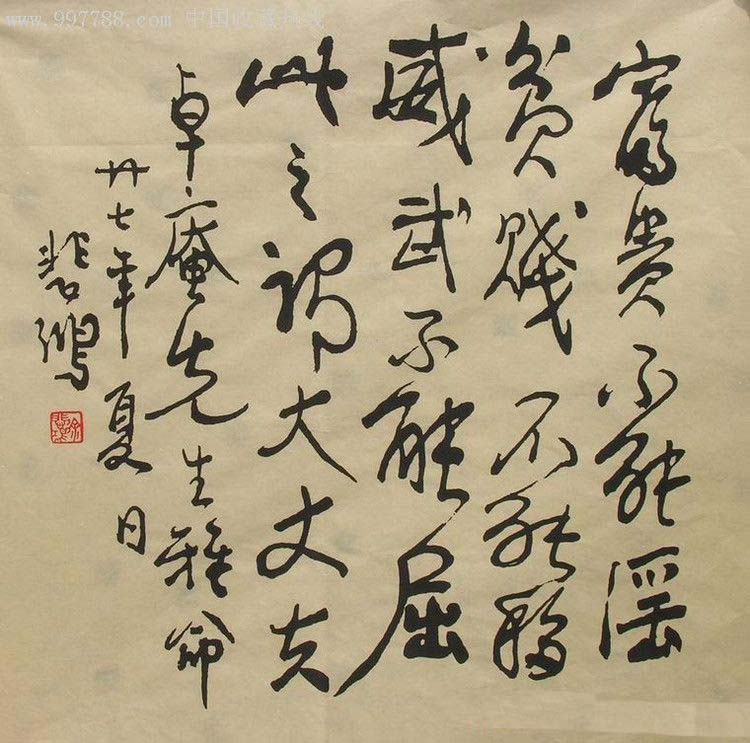 富贵不能淫
贫贱不能移
威武不能屈
此之谓大丈夫
卓庵先生雅命
廿七年夏日
悲鸿
www.997788.com 中国收藏热线